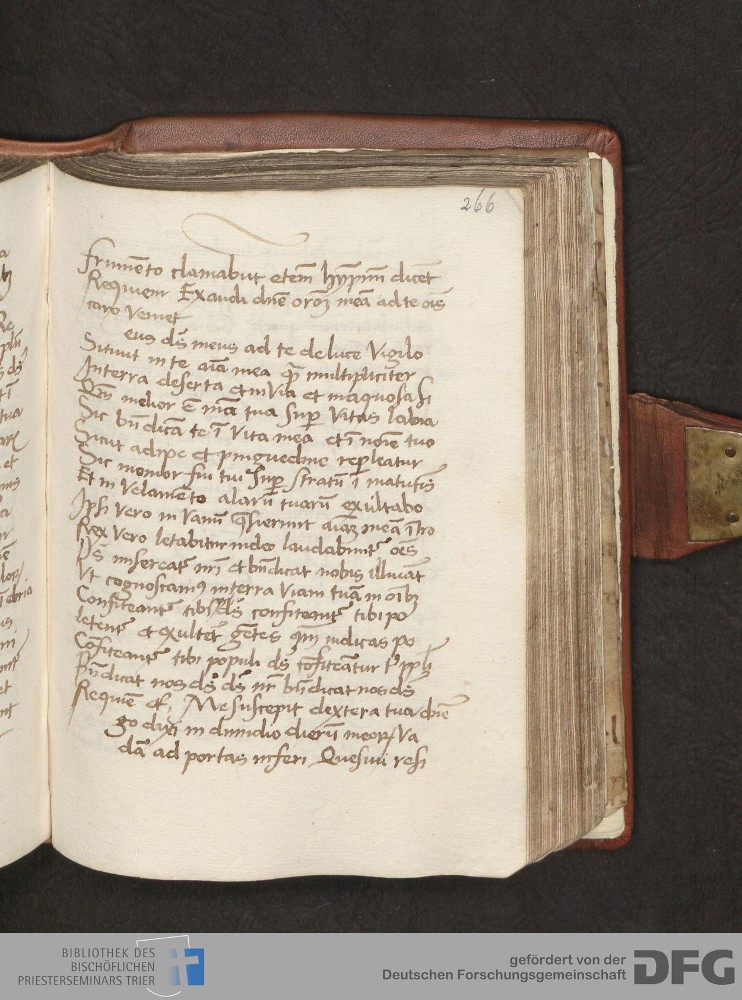 266
frumēto clamabūt eteī hȳmn̄ dicēt
Requiem Exaudi dn̄e orōȝ meā ad te oīs
caro veniet
eus ds̄ meus ad te de luce vigilo
Sitiuit in te aīa mea qm̄ multipliciter
In terra deserta et in via et inaquosa si
Qm̄ melior ē mīa tua sup vitas labia
Sic bn̄dicā te ī vita mea et ī noīe tuo
Sicut adipe et pinguedine repleatur
Sic memor fui tui sup stratū ī matutīs
Et in velamēto alarū tuarū exultabo
Ipsi vero in vanū q̄sierunt aīaȝ meā ītro
Rex vero letabitur in deo laudabunt᷑ oēs
Ds̄ misereat᷑ nr̄i et bn̄dicat nobis illuīat
Vt cognoscamꝰ in terra viam tuā in oībꝫ
Confiteant᷑ tibi ds̄ confiteant᷑ tibi po
letent᷑ et exultēt gētes qm̄ iudicas po
Cōfiteant᷑ tibi populi ds̄ cōfiteātur t᷑ ppl̄i
Bn̄dicat nos ds̄ ds̄ nr̄ bn̄dicat nos ds̄
Requiē et̄, Me suscepit dextera tua dn̄e
go dixi in dimidio dierū meorꝝ va
dā ad portas inferi Quesiui resi
BIBLIOTHEK DES
BISCHÖFLICHEN
PRIESTERSEMINARS TRIER
gefördert von der
Deutschen Forschungsgemeinschaft
DFG